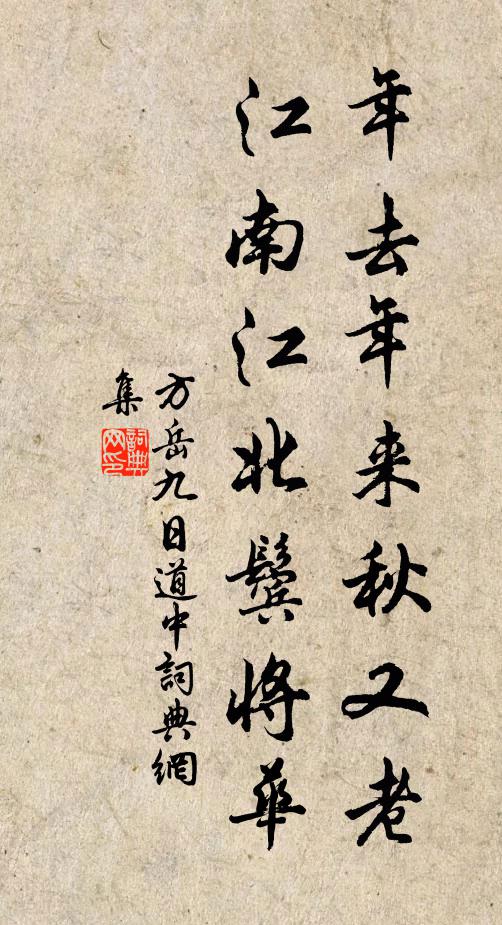 年去年来秋又老
江南江北鬓将华
方岳九日道中詞典網
集
詞典
网印